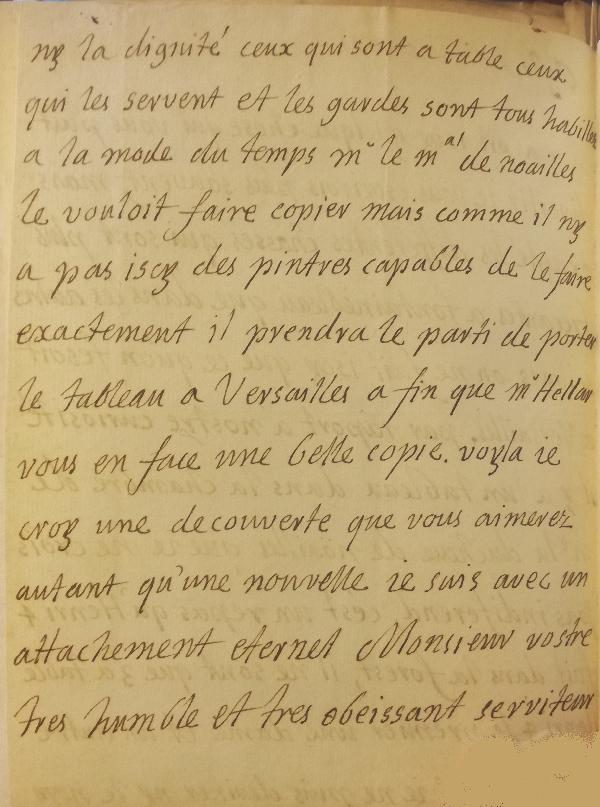 ny la dignité ceux qui sont a table ceux
qui les servent et les gardes sont tous habilles
a la mode du temps mr le mal de noailles
le vouloit faire copier mais comme il ny
a pas iscy des pintres capables de le faire
exactement il prendra le parti de porter
le tableau a Versailles a fin que mr Hellart
vous en face une belle copie. voyla ie
croy une decouverte que vous aimerez
autant qu'une nouvelle ie suis avec un
attachement eternel Monsieur vostre
tres humble et tres obeissant serviteur